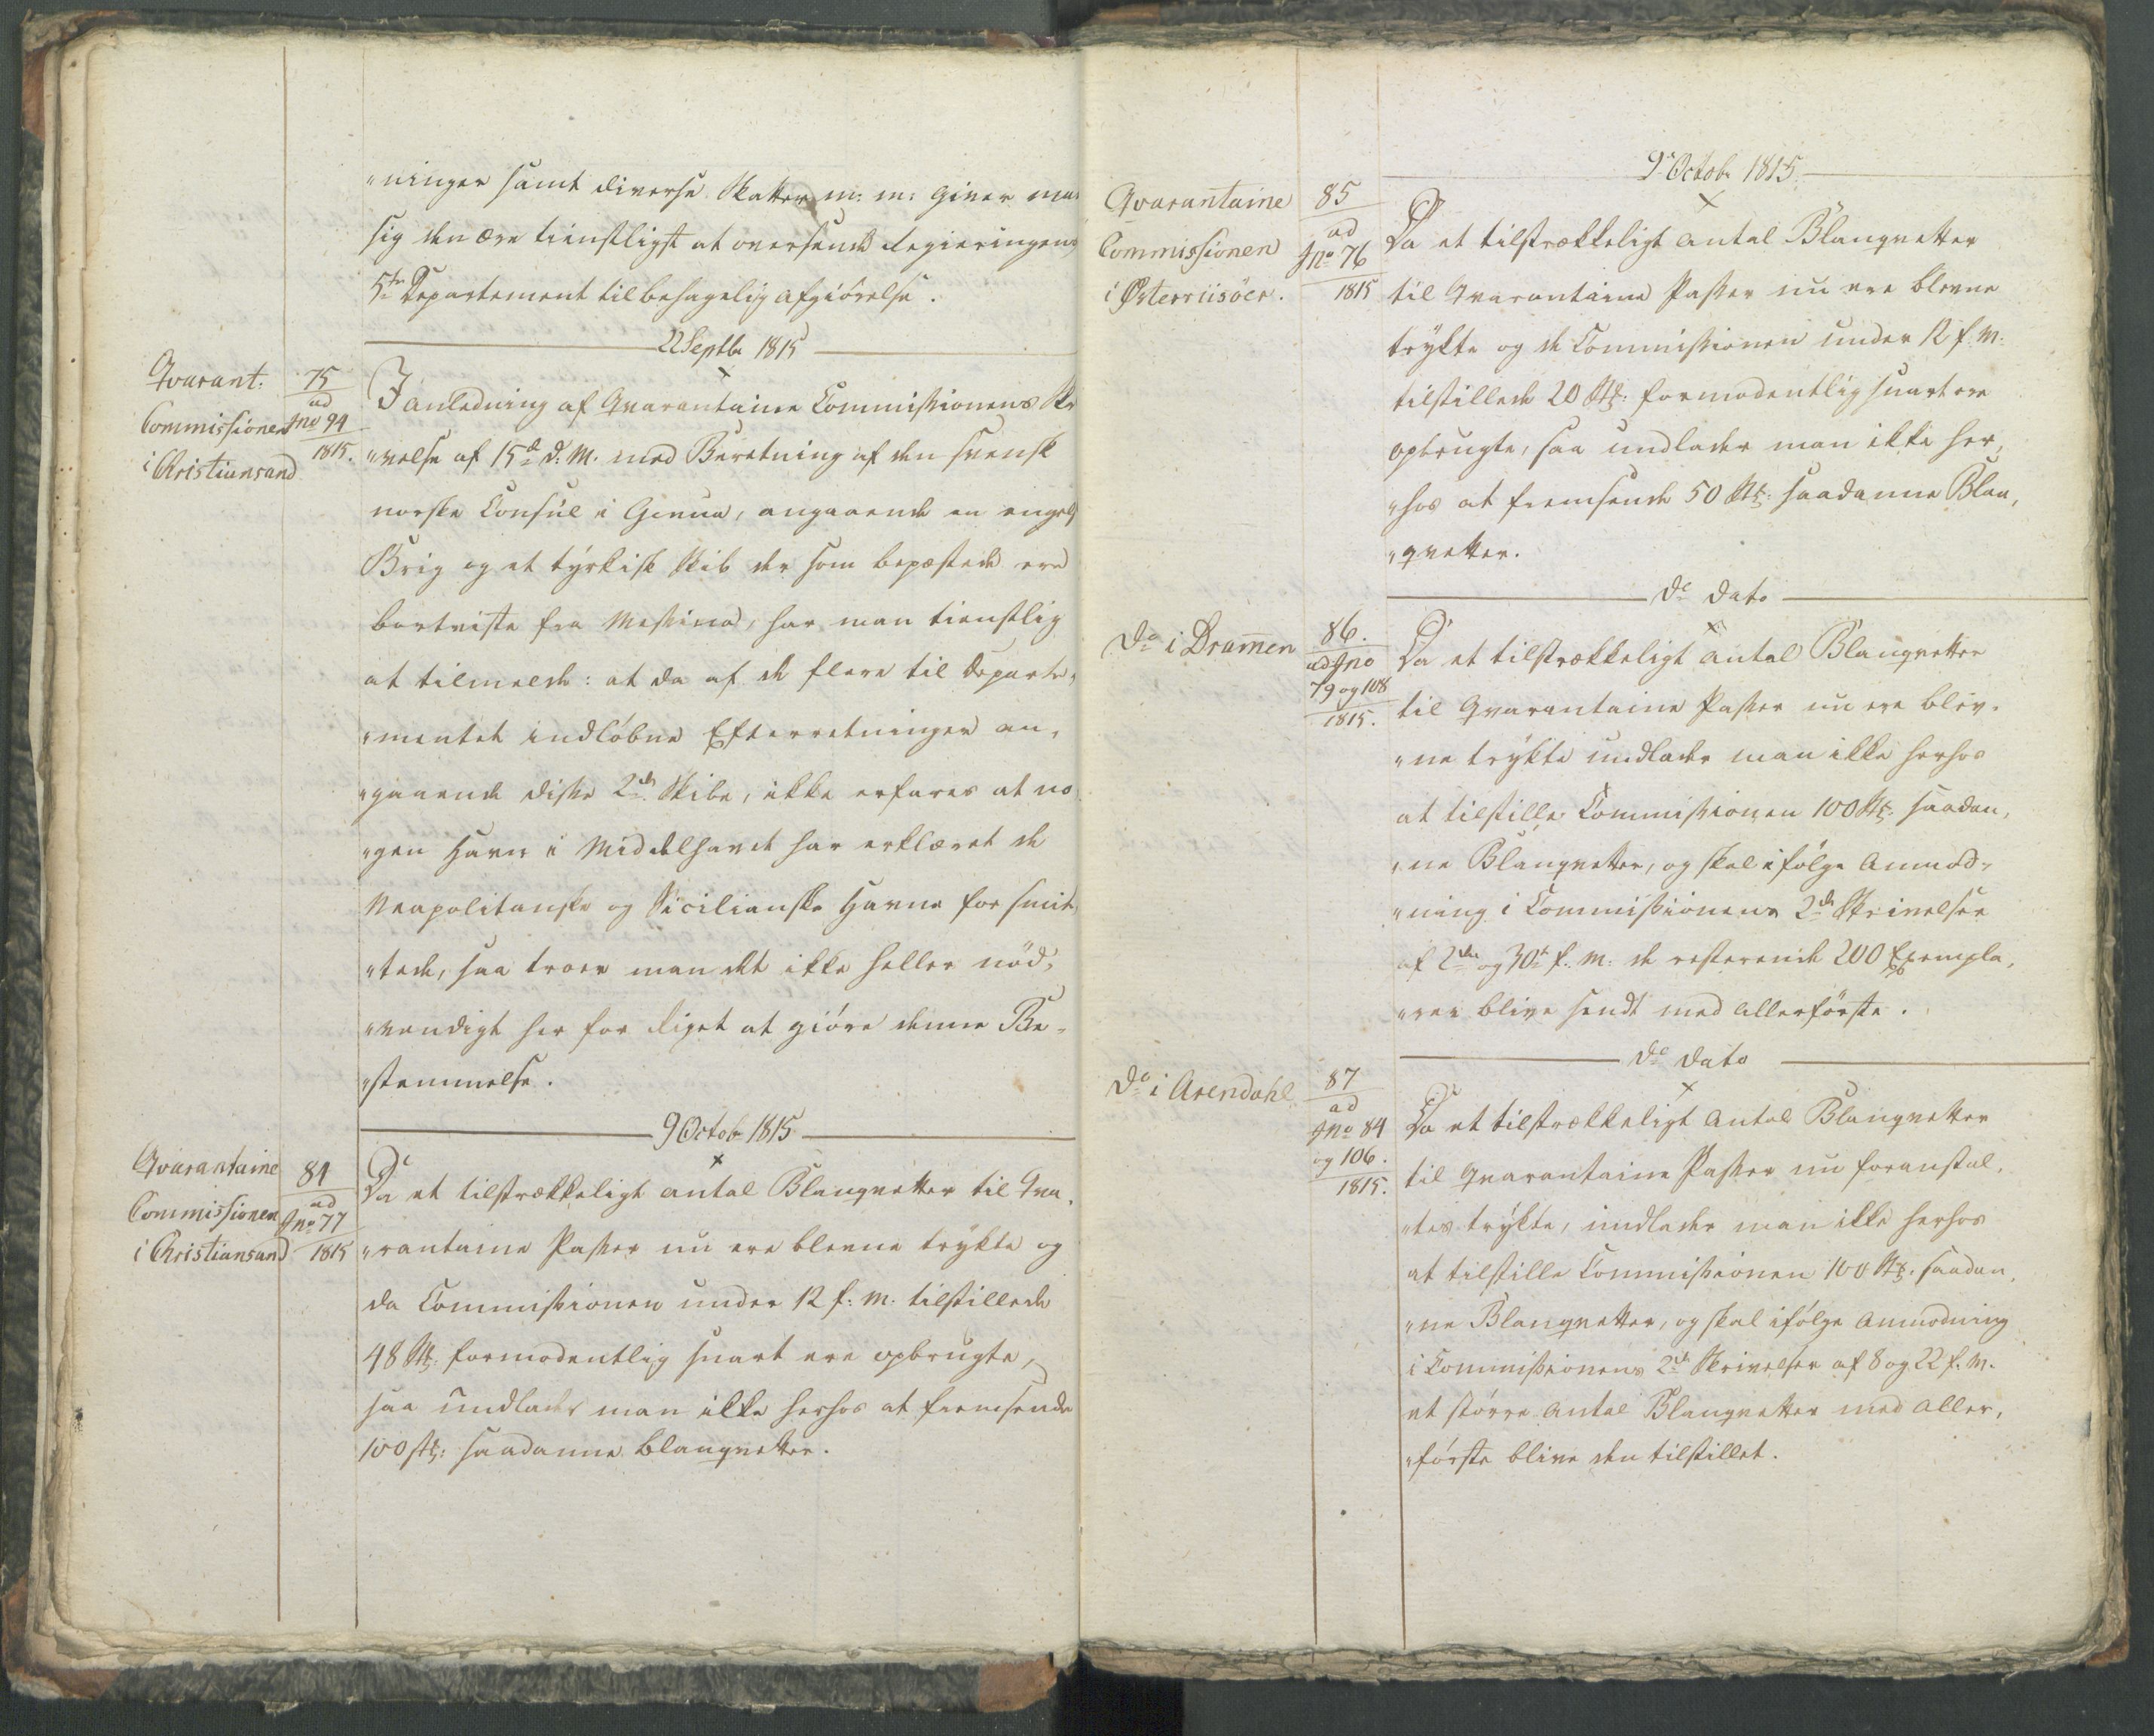 „ninger samt diverse Skatter m: m: giver man
sig den Ære tienstligst at oversende Regieringens
5te Departement til behagelig Afgiörelse.
22 Septbr 1815
Qvarant:
Commissionen
i Christiansand
75
ad
Jno 94
1815.
I Anledning af Qvarantaine Commissionens Skri
„velse af 15de d: M. med Beretning af den svensk
norske Consul i Genua, angaaende en engelsk
Brig og et tyrkisk Skib der som bepæstede ere
bortviste fra Messina, har man tienstlig
at tilmelde: at da af de flere til Departe„
„mentet indløbne Efterretninger an„
„gaaende disse 2de Skibe, ikke erfares at no
„gen Havn i Middelhavet har erklæret de
Neapolitanske og Sicilianske Havne for smit
„tede, saa troer man det ikke heller nöd„
„vendigt her for Riget at giöre denne Be„
„stemmelse.
9 Octob 1815
Qvarantaine
Commissionen
i Christiansand
84
ad
Jno 77
1815
Da et tilstrækkeligt Antal Blanqvetter til Qva„
„rantaine Passer nu ere blevne trykte og
da Commissionen under 12 f: M. tilstillede
48 Stk: formodentlig snart ere opbrugte,
saa undlader man ikke herhos at fremsende
100 Stk: saadanne Blanqvetter.
9 Octobr 1815
Qvarantaine
Commissionen
i Østerriisöer.
85
ad
Jno 76
1815
Da et tilstrækkeligt Antal Blanqvetter
til Qvarantaine Passer nu ere blevne
trykte og de Commissionen under 12 f. M.
tilstillede 20 Stk: formodentlig snart ere
opbrugte, saa undlader man ikke her„
„hos at fremsende 50 Stk: saadanne Blan„
„qvetter.
do Dato
do i Dramen
86.
ad Jno
79 og 108
1815.
Da et tilstrækkeligt Antal Blanqvetter
til Qvarantaine Passer nu ere blev„
„ne trykte undlader man ikke herhos
at tilstille Commissionen 100 Stk: saadan„
„ne Blanqvetter, og skal ifölge Anmod„
„ning i Commissionens 2de Skrivelser
af 2den og 30te f: M: de resterende 200 Exempla„
„rer blive sendt med allerförste.
do Dato
do i Arendahl
87
ad
Jno 84
og 106.
1815.
Da et tilstrækkeligt Antal Blanqvetter
til Qvarantaine Passer nu foranstal„
„tes trykte, undlader man ikke herhos
at tilstille Commissionen 100 Stk: saadan„
„ne Blanqvetter, og skal ifölge Anmodning
i Commissionens 2de Skrivelser af 8 og 22 f. M.
et större Antal Blanqvetter med aller„
„förste blive den tilstillet.